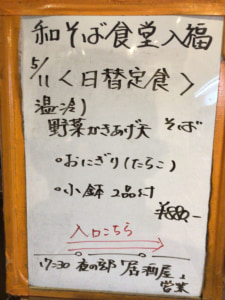 和そば食堂入福
5/11 <日替定食>
温冷)
野菜かきあげ天 そば
・おにぎり(たらこ)
・小鉢 2品付
¥880-
入口こちら
17:30 夜の部 居酒屋
営業